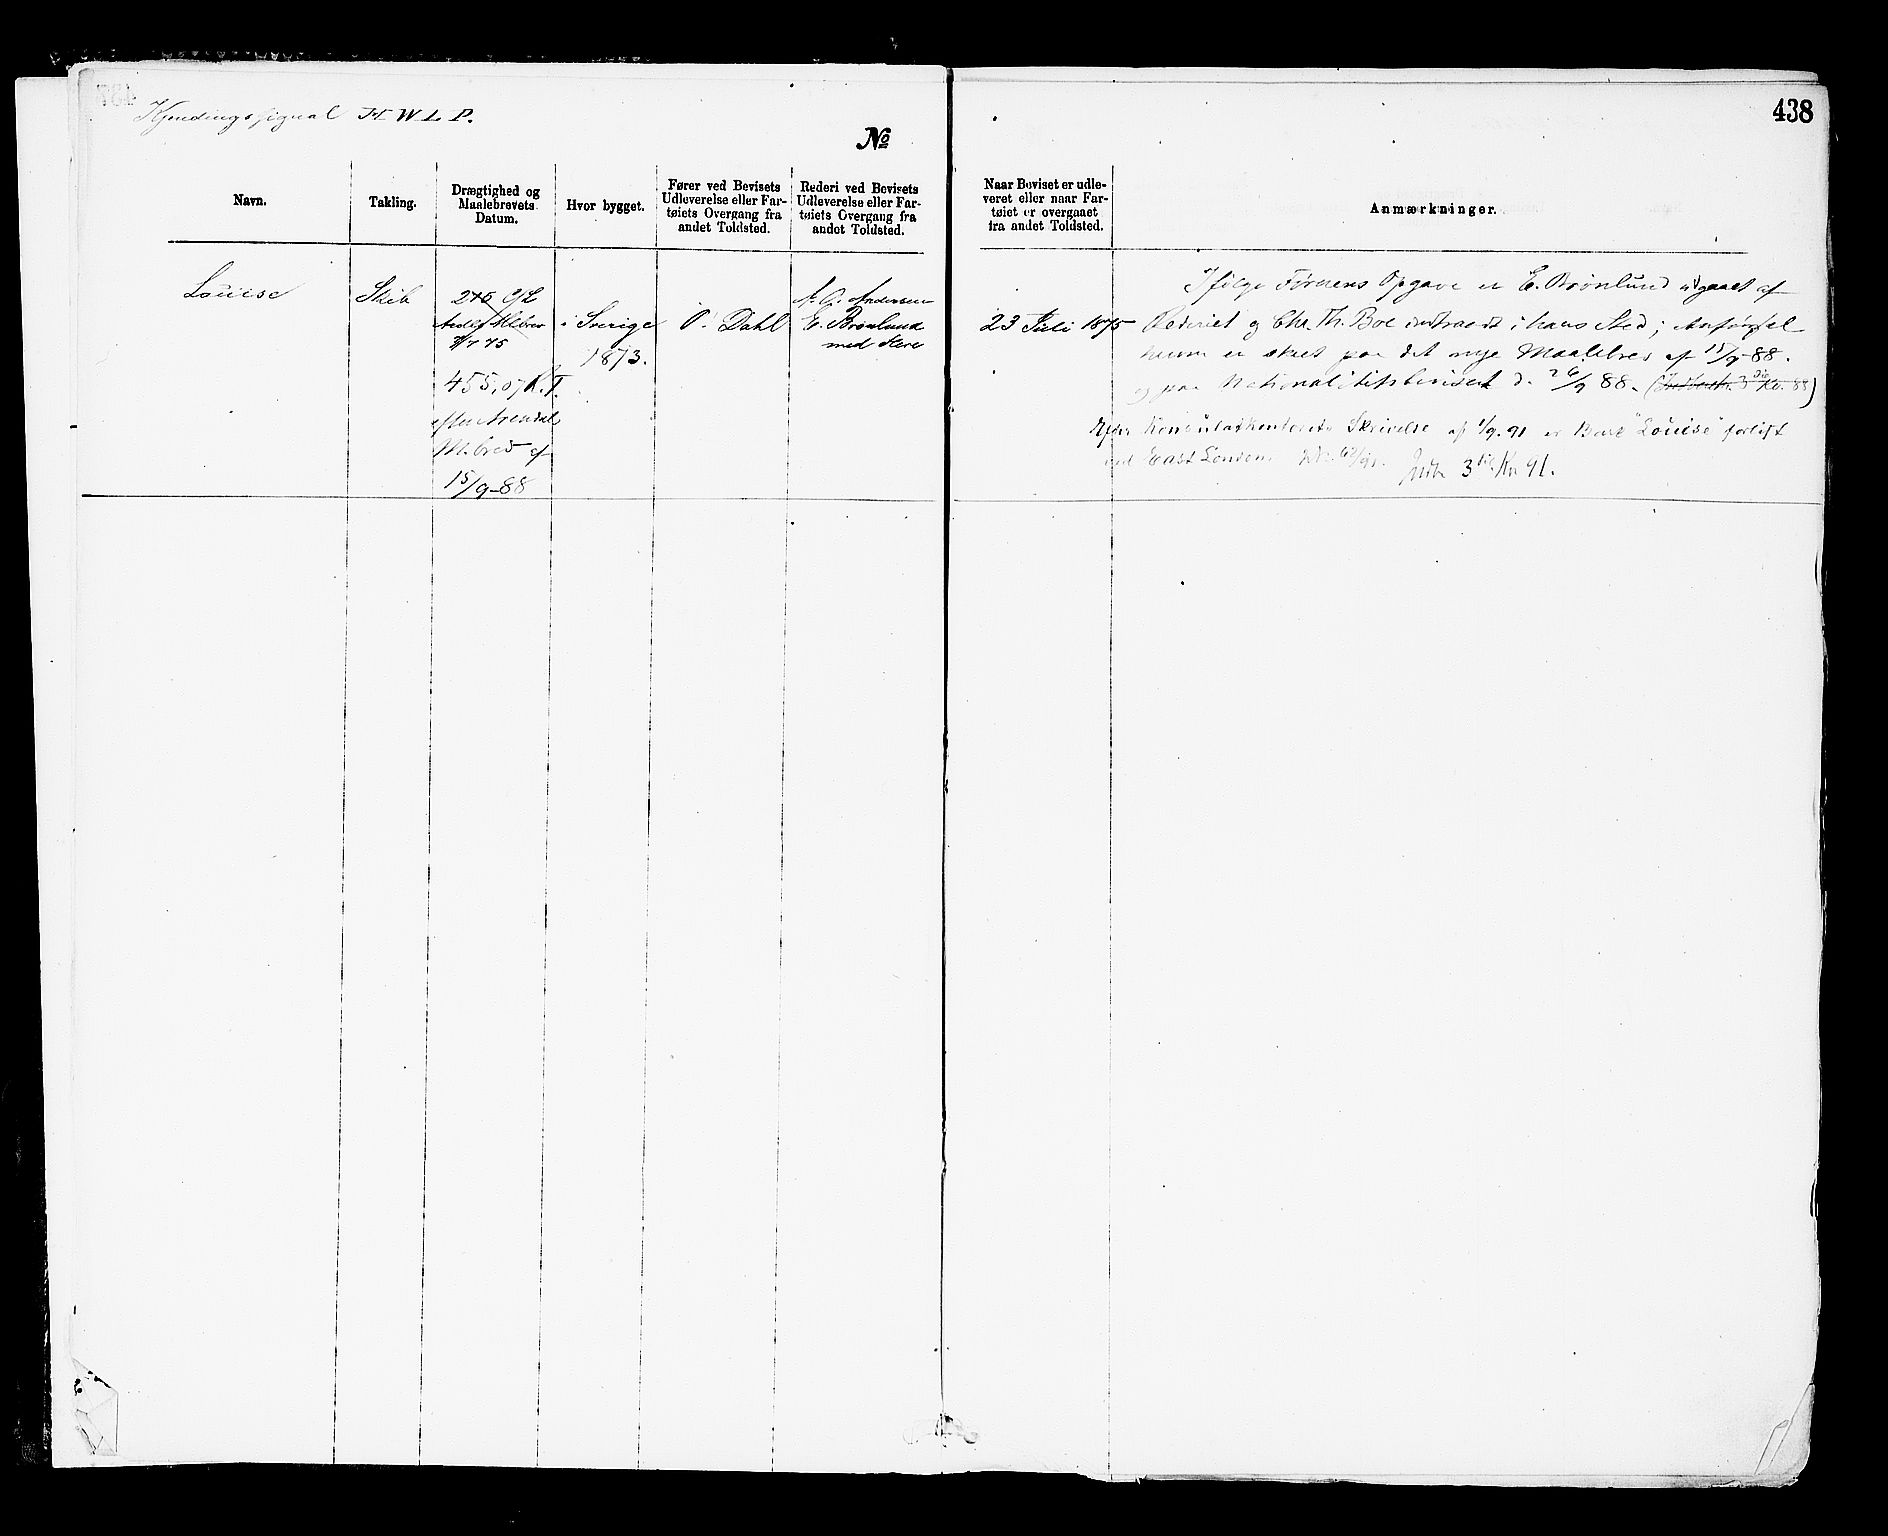 438
Kjendingssignal H W L P.
No
Navn.
Takling.
Drægtighed og
Maalebrevets
Datum.
Hvor bygget.
Fører ved Bevisets
Udleverelse eller Far-
tøiets Overgang fra
andet Toldsted.
Rederi ved Bevisets
Udleverelse eller Far-
tøiets Overgang fra
andet Toldsted.
Naar Beviset er udle-
veret eller naar Far-
tøiet er overgaaet
fra andet Toldsted.
Anmærkninger.
Louise
Skib
215 C/L
455,07 R.T.
efter Arendal
M.brev af
15/9-88
i Sverige
1873.
P. Dahl
A. G. Andersen
E. Brønlund
med flere
23 Juli 1875
Ifølge Førerens Opgave er E. Brønlund udgaaet af
Rederiet og Chr. Th. Boe indtraadt i hans Sted; Anførsel
herom er skeet paa det nye Maalebrev af 15/9-88.
og paa Nationalitetsbeviset d. 26/9 88. ( 3die Kv. 88)
Efter Konsulatkontorets Skrivelse af 1/9. 91 er Bark "Louise" forlist
ved East London. 3die Kv. 91.